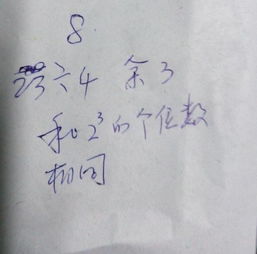 8
23÷4 余3
和2³的个位数
相同